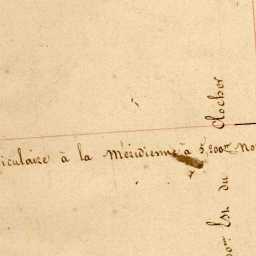 iculaire à la Méridienne à 5,200ᵐ No
0ᵐ Est du Clocher